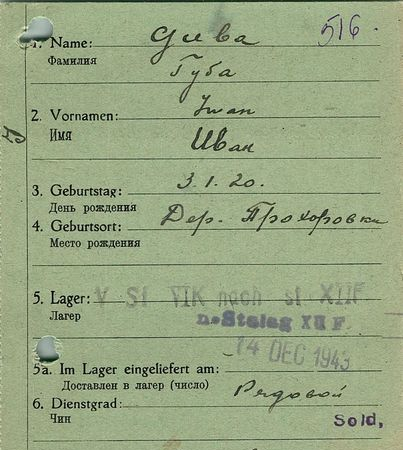 516.
1. Name: Guba
Фамилия Губа
2. Vornamen: Iwan
Имя Иван
3. Geburtstag: 3.1.20.
День рождения
4. Geburtsort: Дер. Прохоровка
Место рождения
5. Lager: V St VIK nach st XIIF
Лагер n. Stalag XII F.
14 DEC 1943
5a. Im Lager eingeliefert am:
Доставлен в лагер (число) Рядовой
6. Dienstgrad:
Чин Sold,